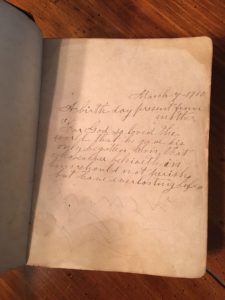 March 9-1910
A birth day present from
mother
For God so loved the
world that he gave his
only begotten Son, that
whosoever believeth in
him should not perish
but have everlasting life